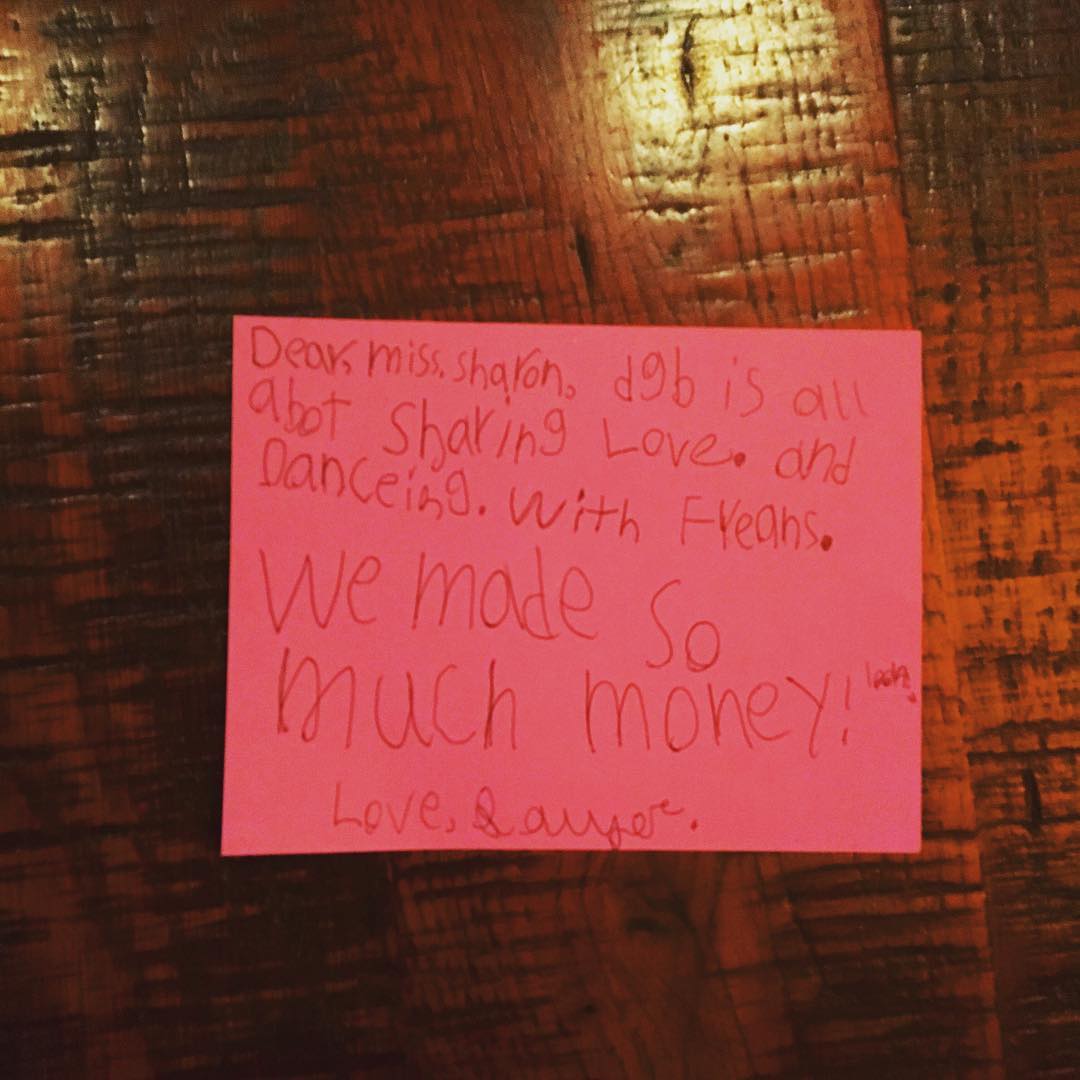 Dear, miss. sharon, dgb is all
abot Sharing Love. and
Danceing. with Freans.
We made so
much money!
Love,